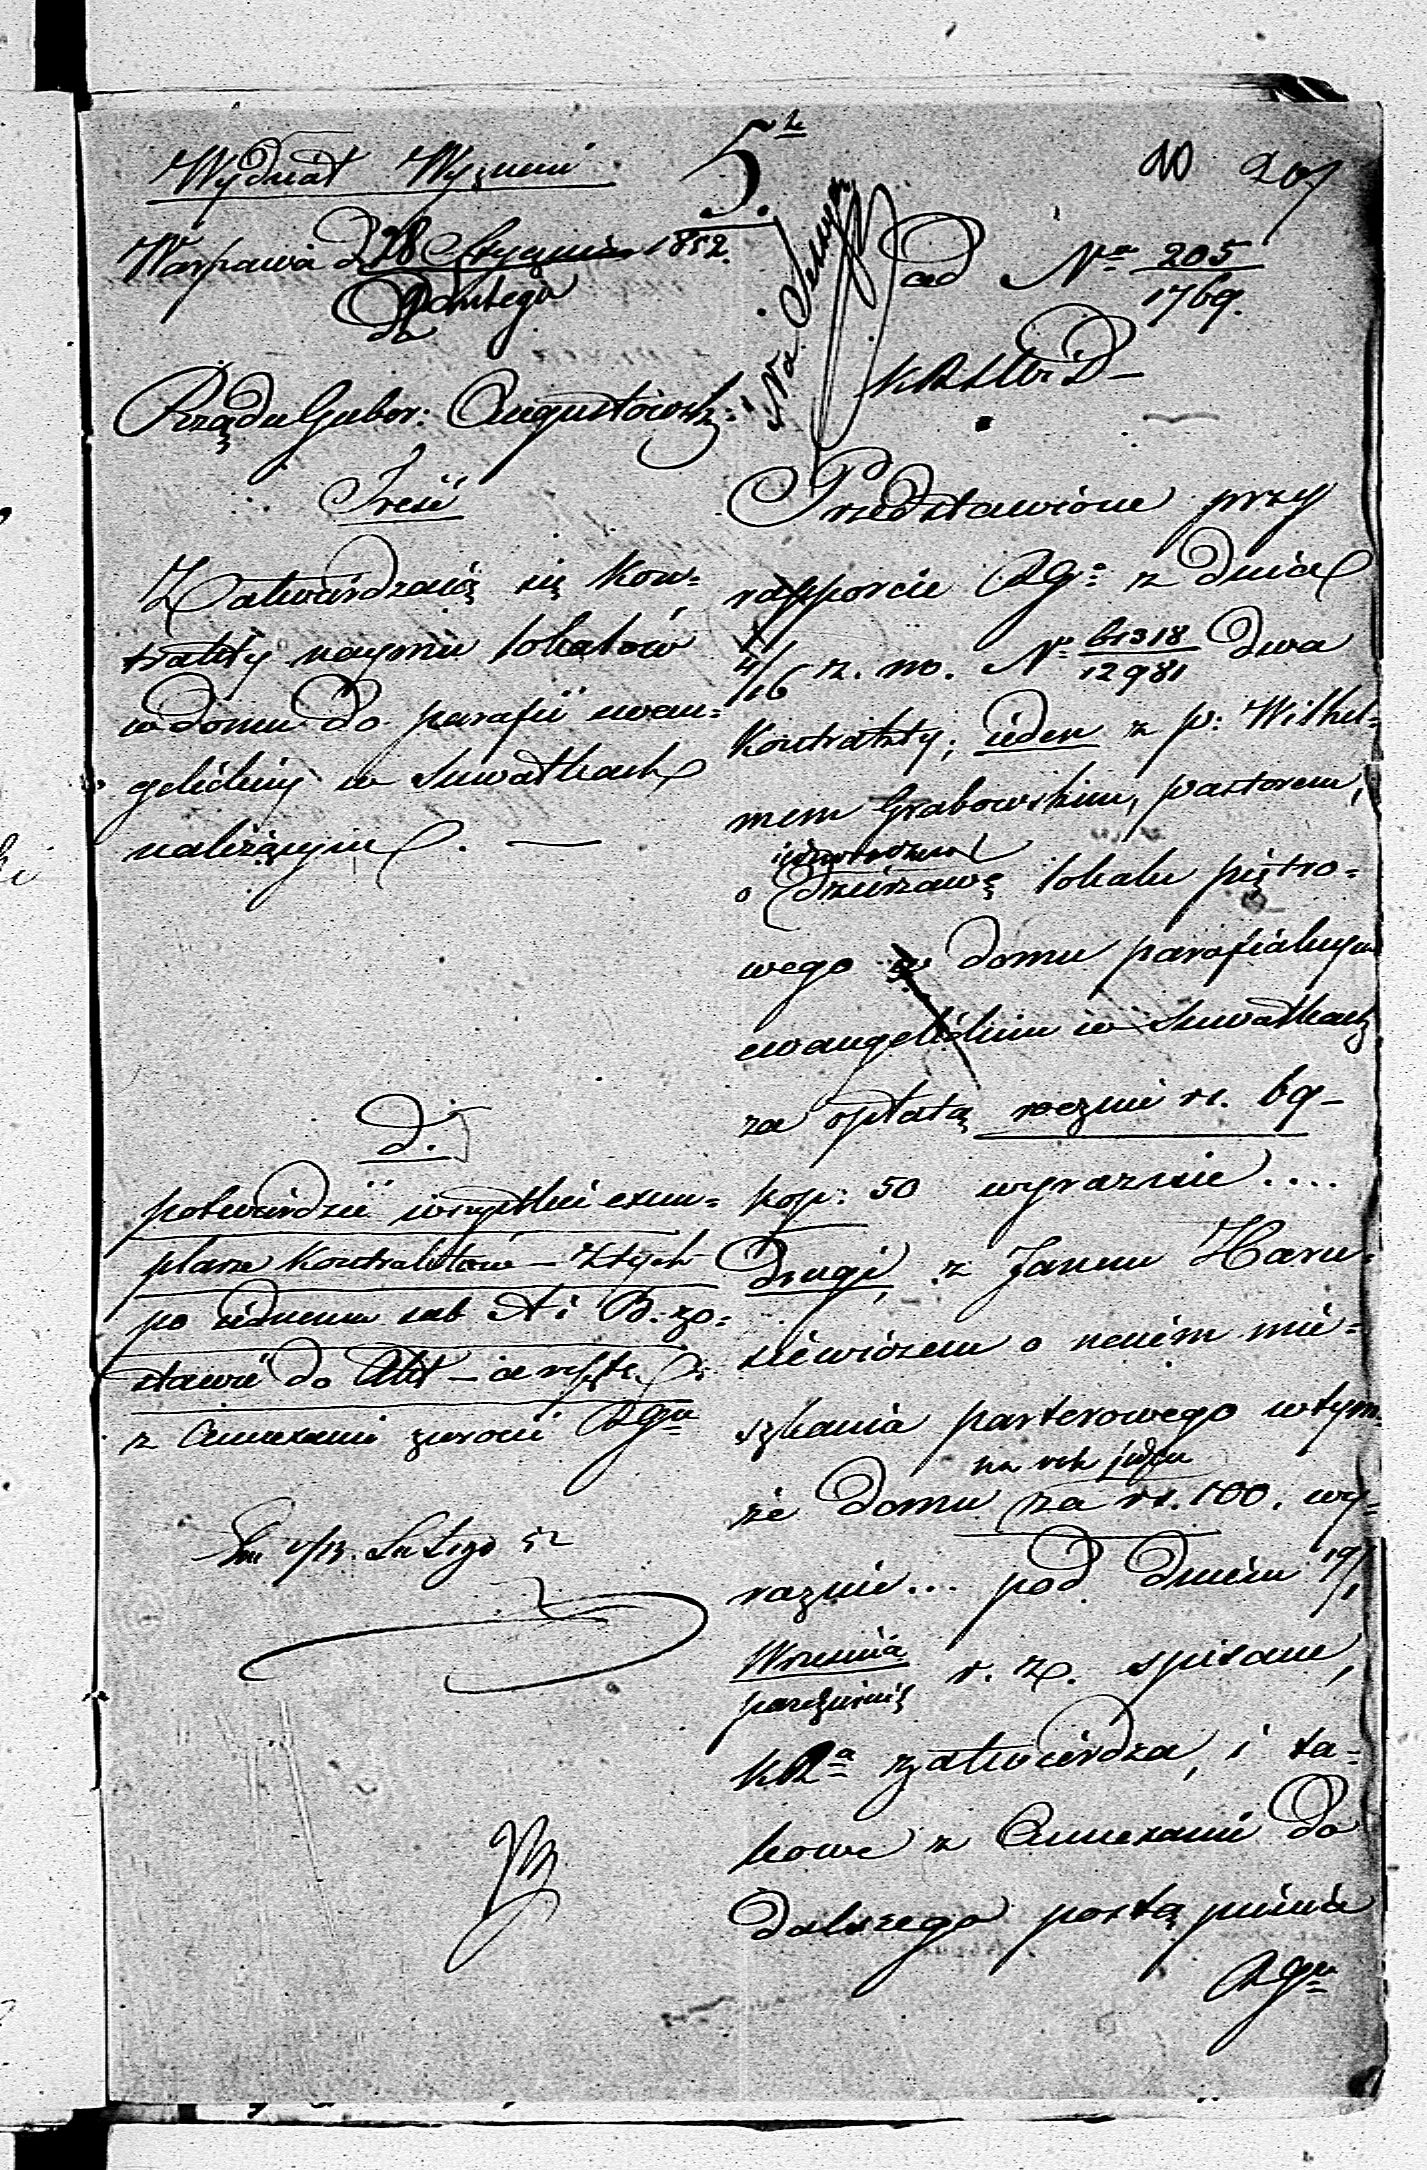 Wydział Wyznań
5.
10 207
Warszawa d. 28 Stycznia 1852.
Lutego
Na Sessyą
ad Nro 205
1769.
Rządu Guber: Augustowsk:
KRSWiD
Treść
Zatwierdzaią się kon=
trakty naymu lokalów
w domu do parafii ewan=
gelickiej w Suwałkach
należącym. —
D.
potwierdzić wszystkie exem=
plarze kontraktów – z tych
po iednemu sub A i B. zo=
stawić do Akt – a resztę
z Annexami zwrócić RGu
1/13. Lutego 52
Przedstawione przy
rapporcie RGo z dnia
4/16 z. m. No 61318 dwa
12981
kontrakty; ieden z p: Wilhel=
mem Grabowskim, pastorem,
o dzierżawę lokalu piętro=
wego w domu parafialnym
ewangelickim w Suwałkach
za opłatą rocznie rs. 69
kop: 50 wyraznie....
drugi, z Janem Haru=
siewiczem o naiem mie=
szkania parterowego w tym=
na rok jeden
że domu za rs. 100. wy=
raznie... pod dniem 19/1
Września r. z. spisane,
Pazdziernik
KRa zatwierdza, i ta=
kowe z Annexami do
dalszego postąpienia
RGu